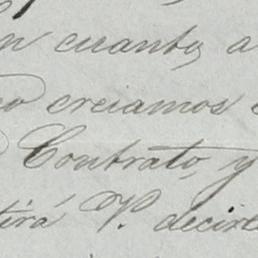 en cuanto a
creiamos
Contrato, y
tirá V. decirle